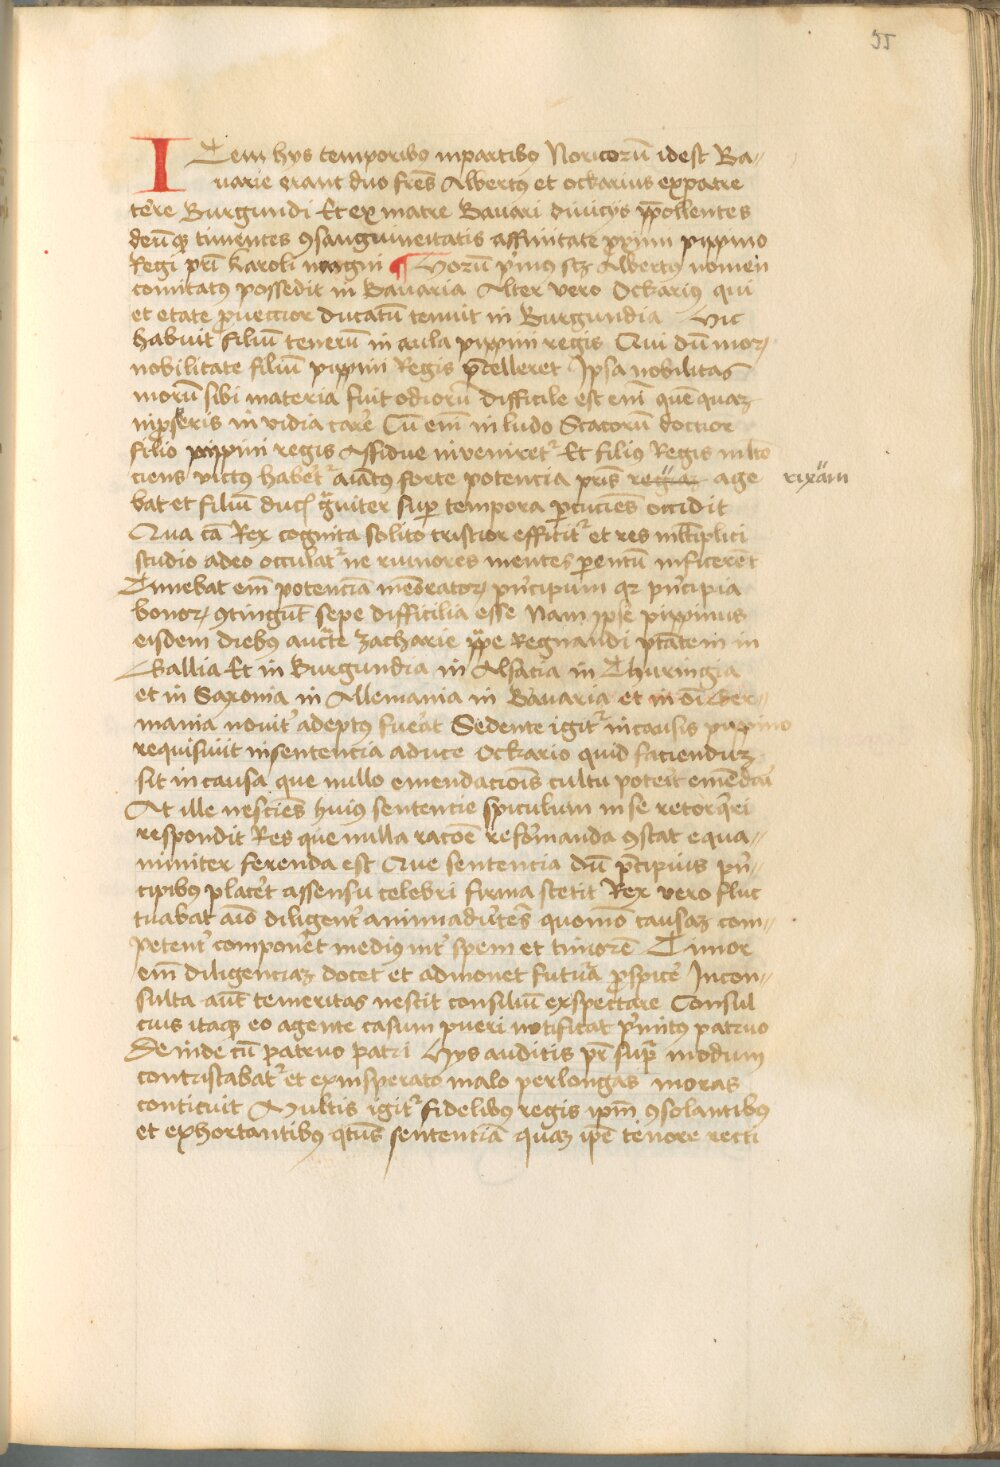 55
Item hys temporibꝰ inpartibꝰ Noricorū idest Ba〃
varie erant duo frēs Albertꝰ et ockarius expatre
tēre Burgundi Et ex matre Bavari diuicys ꝑpollentes
deūqꝫ timentes ꝯsanguineitatis affinitate ꝓximi pippino
Regi pr̄i karoli magni ¶ Horū p̓mus scꝫ Albertꝰ nomen
comitatꝰ possedit in Bavaria Alter vero Ockarius qui
et etate ꝓuectior ducatū tenuit in Burgundia Hic
habuit filiū tenerū in aula pippini regis Qui dū moꝝ
nobilitate filiū pippini Regis p̄celleret Ipsa nobilitas
morū sibi materia fuit odiorū difficile est em̄ quēquaꝫ
invidia carē Cū em̄ in ludo Scacorū doctior
filio pippini regis Assidue inveniretᷣ Et filiꝰ Regis mlto
ciens victꝰ habētᷣ aīatꝰ forte potencia pr̄is age rixam
bat et filiū duc̄ gͣuiter suꝑ tempora ꝑcuciēs occidit
Qua cā Rex cognita solito tristior efficitᷣ et res ml̄tiplici
studio adeo occultatᷣ ne rumores mentes parentū inficerēt
Timebat em̄ potenciā mēoratoꝝ p̓ncipum qꝛ p̓ncipia
bonoꝝ ꝯtingūt sepe difficilia esse Nam ipse pippinus
eisdem diebꝰ auctͣte Zacharie ppͤ Regnandi ptātem in
Gallia Et in Burgundia in Alsacia in Thuringia
et in Saxonia in Allemania in Bavaria et in oī Ger〃
mania novit̓ adeptꝰ fuēat Sedente igitᷣ incausis pippino
requisiuit insentencia aduce Ockario quid faciendūꝫ
sit in causa que nullo emendaciōis cultu poterit emēdari
At ille nesciēs huiꝰ sentencie spiculum inse retorq̄ri
respondit Res que nulla racōe refōmanda ꝯstat equa〃
nimiter ferenda est Que sentencia dū p̄cipuis p̓n〃
cipibꝰ placēt assensu celebri firma stetit Rex vero fluc
tuabat aīo diligent̓ animadūtēs quomō causaꝫ com〃
petent̓ componēt mediꝰ int̓ spem et timorē Timor
em̄ diligenciaꝫ docet et admonet futura ꝓspicē Incon〃
sulta aūt temeritas nescit consiliū exspectare Consul
cius itaqꝫ eo agente casum pueri notificat p̓mitꝰ patruo
Deinde cū patruo patri Hys auditis pr̄ supͣ modum
contristabatᷣ et exinsperato malo perlongas moras
conticuit Multis igitᷣ fidelibꝰ regis ip̄m ꝯsolantibꝰ
et exhortantibꝰ qtꝰ sentenciā quaꝫ ip̄e tenore recti